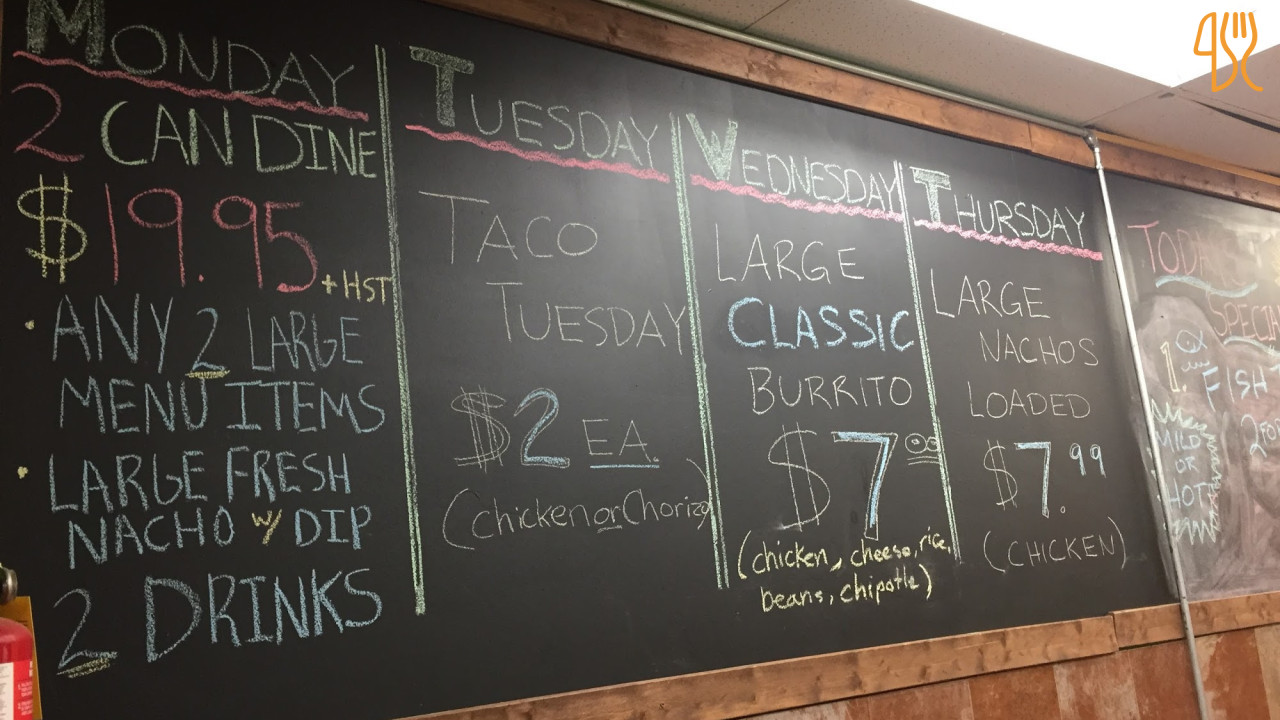 MONDAY
2 CAN DINE
$19.95
+HST
• ANY 2 LARGE
MENU ITEMS
• LARGE FRESH
NACHO w/ DIP
2 DRINKS
TUESDAY
TACO
TUESDAY
$2 EA.
(chicken or Chorizo)
WEDNESDAY
LARGE
CLASSIC
BURRITO
$7.00
(chicken, cheese, rice,
beans, chipotle)
THURSDAY
LARGE
NACHOS
LOADED
$7.99
(CHICKEN)
1. FISH
MILD
OR
HOT